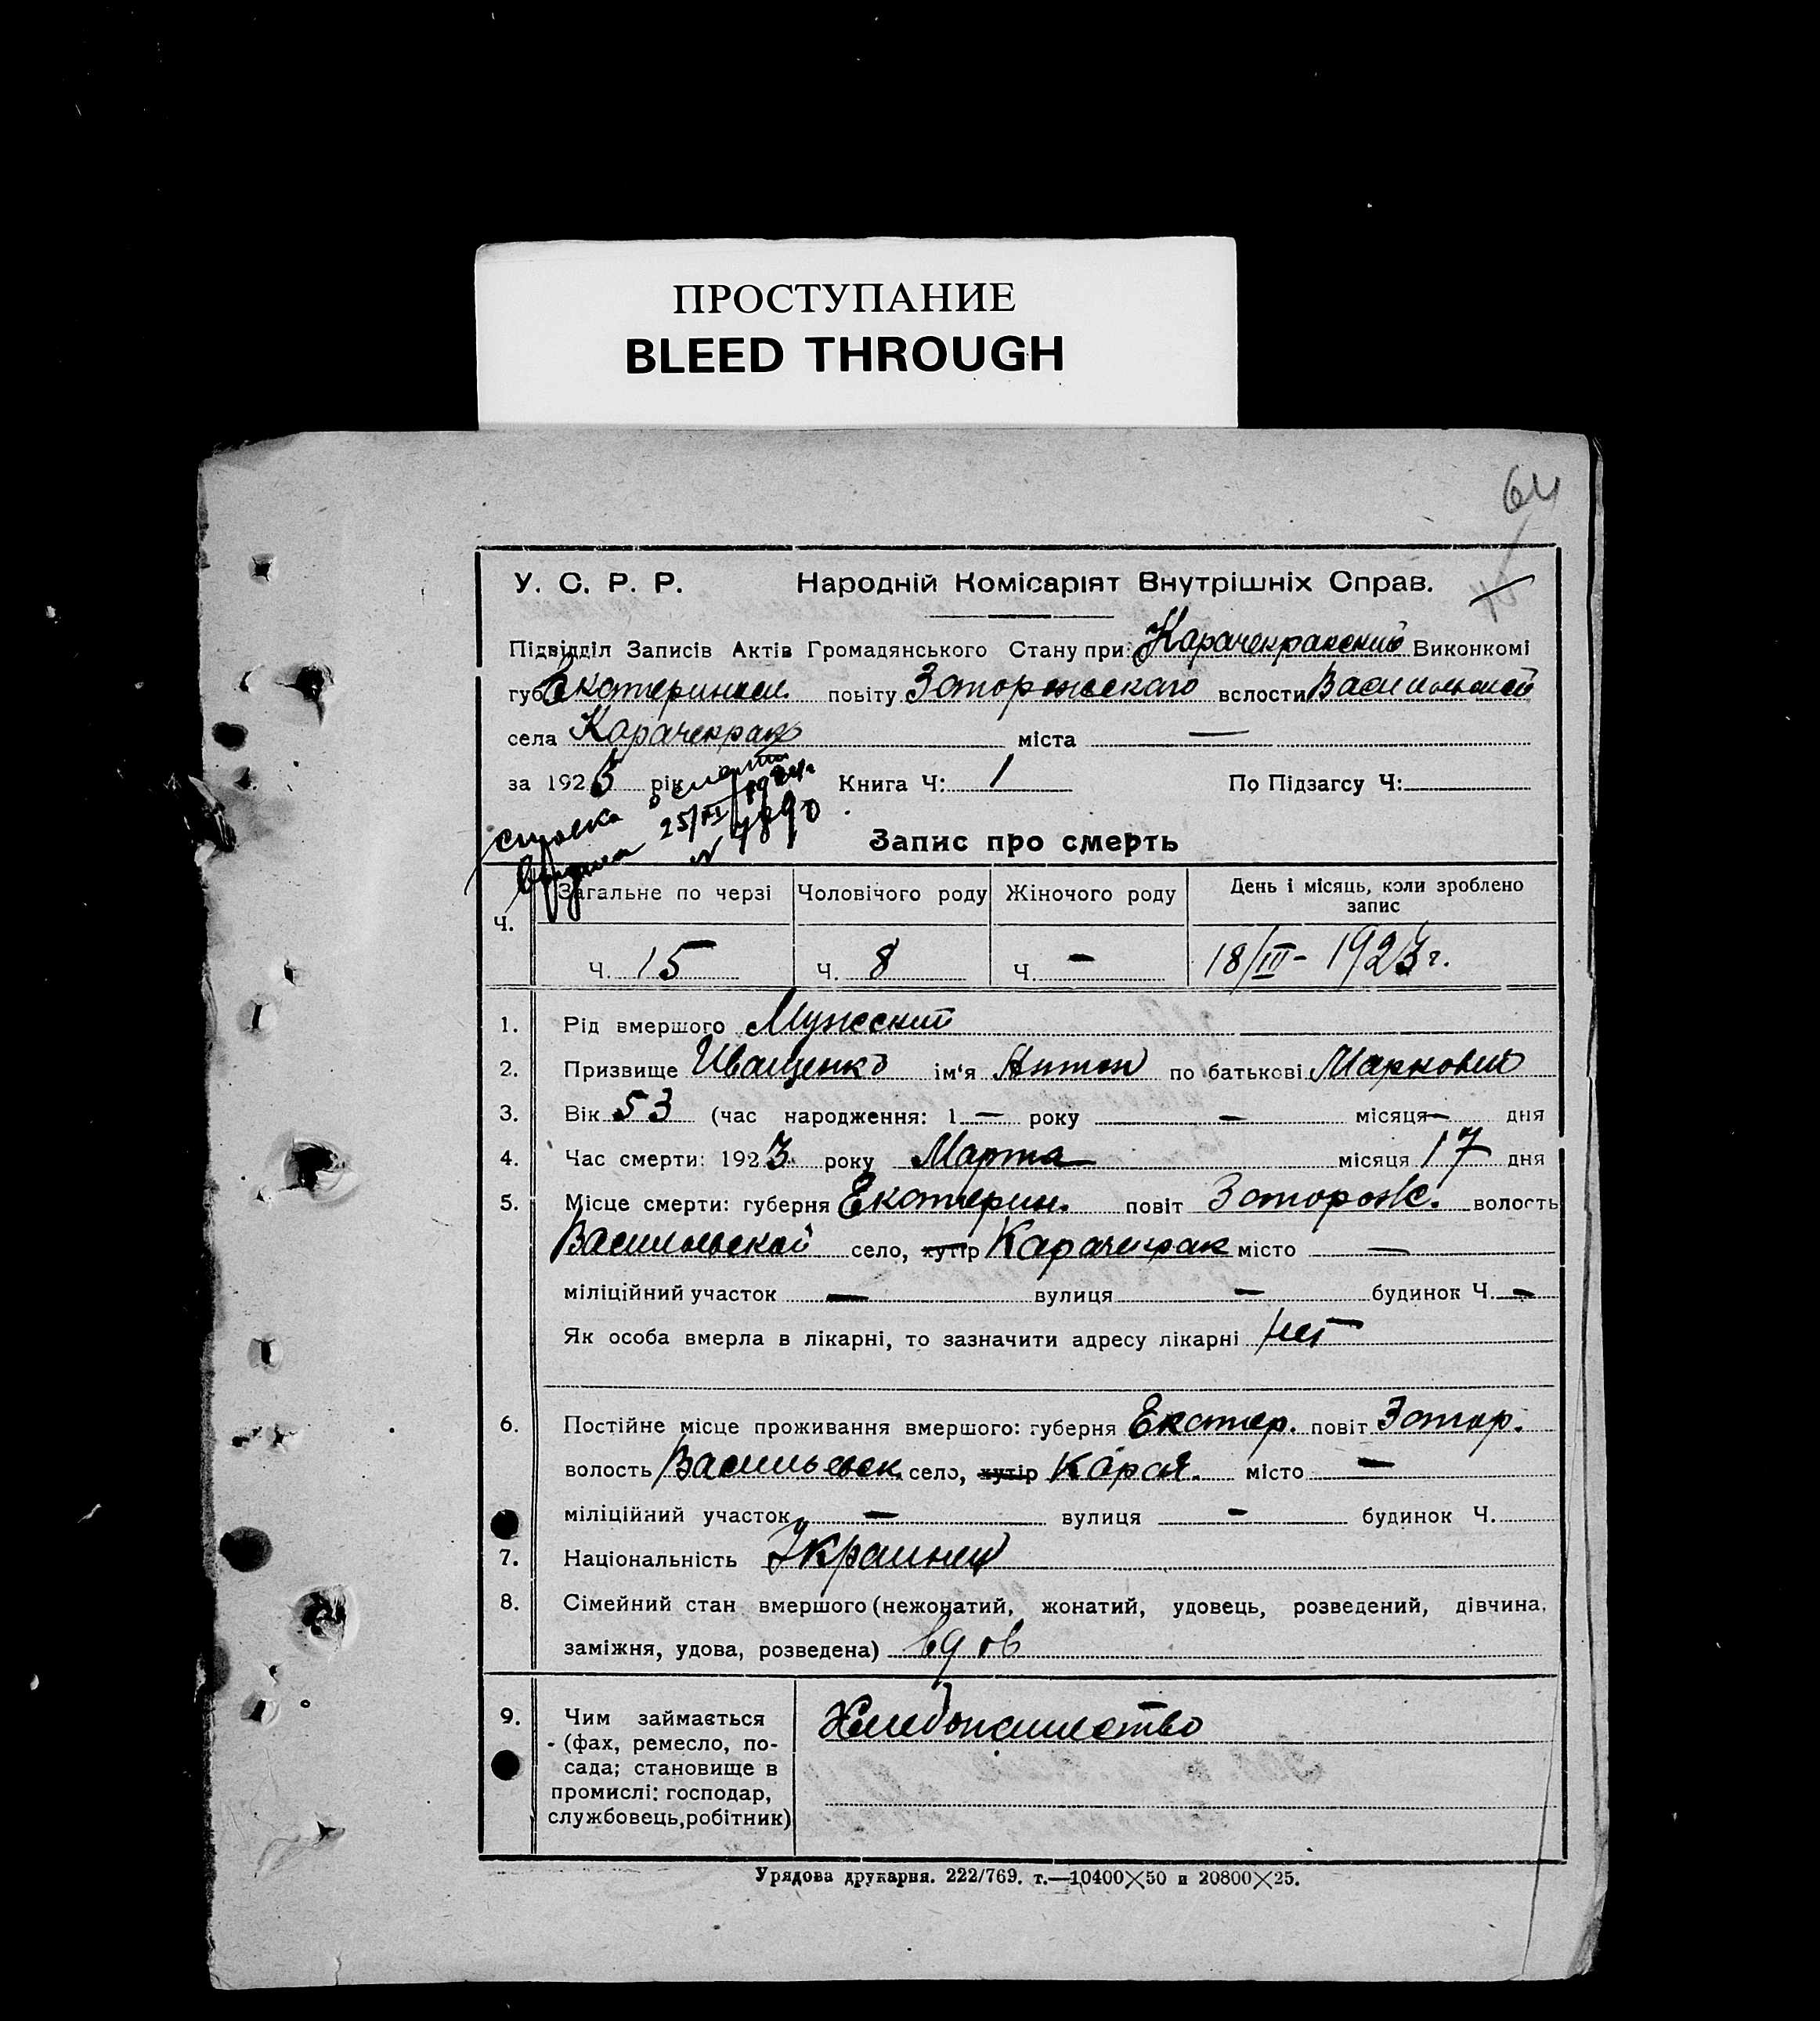 ПРОСТУПАНИЕ
BLEED THROUGH
64
У. С. Р. Р. Народній Комісаріят Внутрішніх Справ.
Підвідділ Записів Актів Громадянського Стану при: Карачекракский Виконкомі
губ. Екатериносл. повіту Запорожскаго волости Васильевской
села Карачекрак міста —
за 1923 рік Книга Ч: 1 По Підзагсу Ч:
справка о смерти
выдана 25/XI 1924г.
N 7890
Запис про смерть
Ч. Загальне по черзі Чоловічого роду Жіночого роду День і місяць, коли зроблено запис
Ч. 15 Ч. 8 Ч. — 18/III - 1923 г.
1. Рід вмершого Мужеский
2. Призвище Иващенко ім'я Антон по батькові Маркович
3. Вік 53 (час народження: 1 — року — місяця — дня
4. Час смерти: 1923 року Марта місяця 17 дня
5. Місце смерти: губерня Екатерин. повіт Запорож. волость
Васильевской село, хутір Карачекрак місто —
міліційний участок — вулиця — будинок Ч. —
Як особа вмерла в лікарні, то зазначити адресу лікарні нет
6. Постійне місце проживання вмершого: губерня Екатер. повіт Запор.
волость Васильевск. село, хутір Карач. місто —
міліційний участок — вулиця — будинок Ч.
7. Національність Украинец
8. Сімейний стан вмершого (нежонатий, жонатий, удовець, розведений, дівчина,
заміжня, удова, розведена) вдов
9. Чим займається Хлебопашество
(фах, ремесло, по-
сада; становище в
промислі: господар,
службовець, робітник)
Урядова друкарня. 222/769. т.—10400×50 и 20800×25.